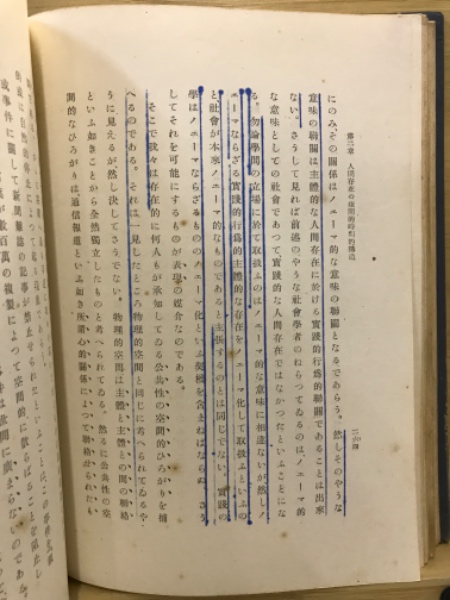 第二章 人間存在の空間的時間的構造
二六四
にのみその關係はノエーマ的な意味の聯關となるであらう。然しそのやうな
意味の聯關は主體的な人間存在に於ける實踐的行爲的聯關であることは出來
ない。さうして見れば前述のやうな社會學者のねらつてゐるのは、ノエーマ的
な意味としての社會であつて、實踐的な人間存在ではなかつたといふことにな
る。勿論學問の立場に於て取扱ふのはノエーマ的な意味に相違ないが然しノ
エーマならざる實踐的行爲的主體的な存在をノエーマ化して取扱ふといふの
と、社會が本來ノエーマ的なものであると主張するのとは同じでない。實踐の
學はノエーマならざるもののノエーマ化といふ契機を含まねばならぬ。さう
してそれを可能にするものが表現の媒介なのである。
そこで我々は存在的に何人もが承知してゐる公共性の空間的ひろがりを捕
へるのである。それは一見したところ物理的空間と同じに考へられてゐるや
うに見えるが然し決してさうでない。物理的空間は主體と主體との間の聯絡
といふ如きことから全然獨立したものと考へられてゐる。然るに公共性の空
間的なひろがりは、通信報道といふ如き所謂心的關係によつて聯絡せられたも